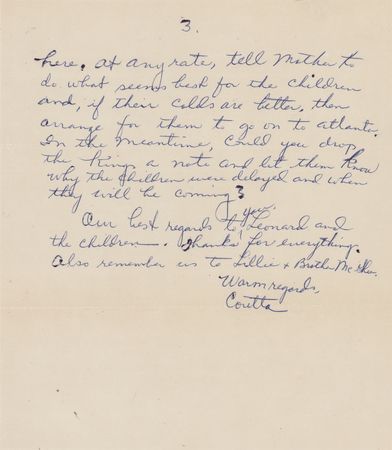 3.
here. At any rate, tell Mother to
do what seems best for the children
and, if their colds are better, then
arrange for them to go on to Atlanta.
In the meantime, could you drop
the Kings a note and let them know
why the children were delayed and when
they will be coming?
Our best regards to you, Leonard and
the children. Thanks for everything.
Also remember us to Lillie & Brother
Warm regards,
Coretta